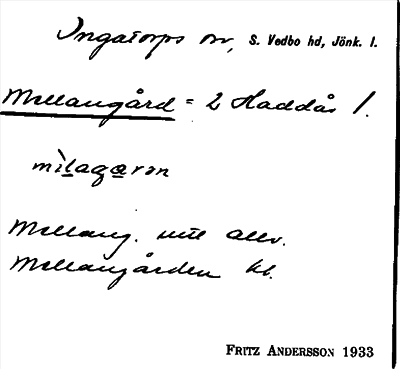 Ingatorps sn, S. Vedbo hd, Jönk. l.
Mellangård = 2 Haddås 1.
mìlagarən
Mellang. utt allv.
Mellangården kl.
FRITZ ANDERSSON 1933